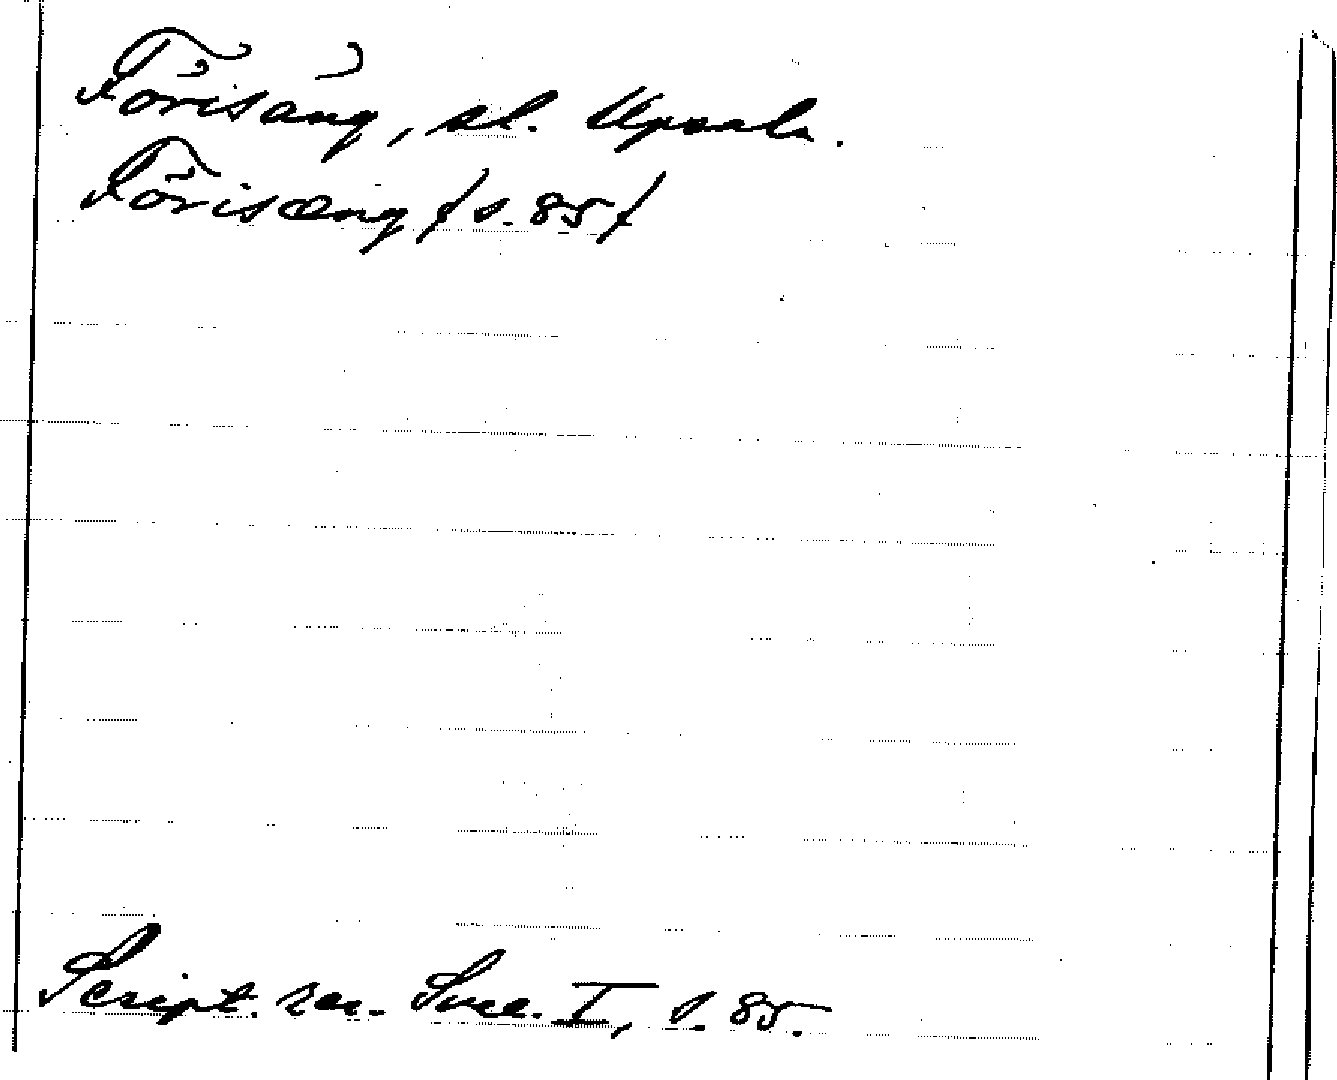 Förisäng, sl. Upsala.
Förisæng / s. 85 /
Script. rer. Svec. I, s. 85.